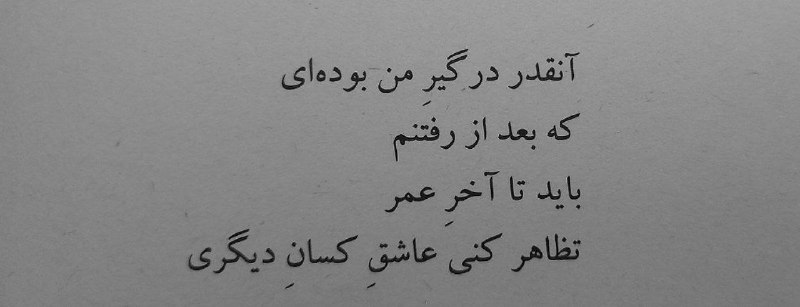 آنقدر درگیرِ من بوده‌ای
که بعد از رفتنم
باید تا آخرِ عمر
تظاهر کنی عاشقِ کسانِ دیگری